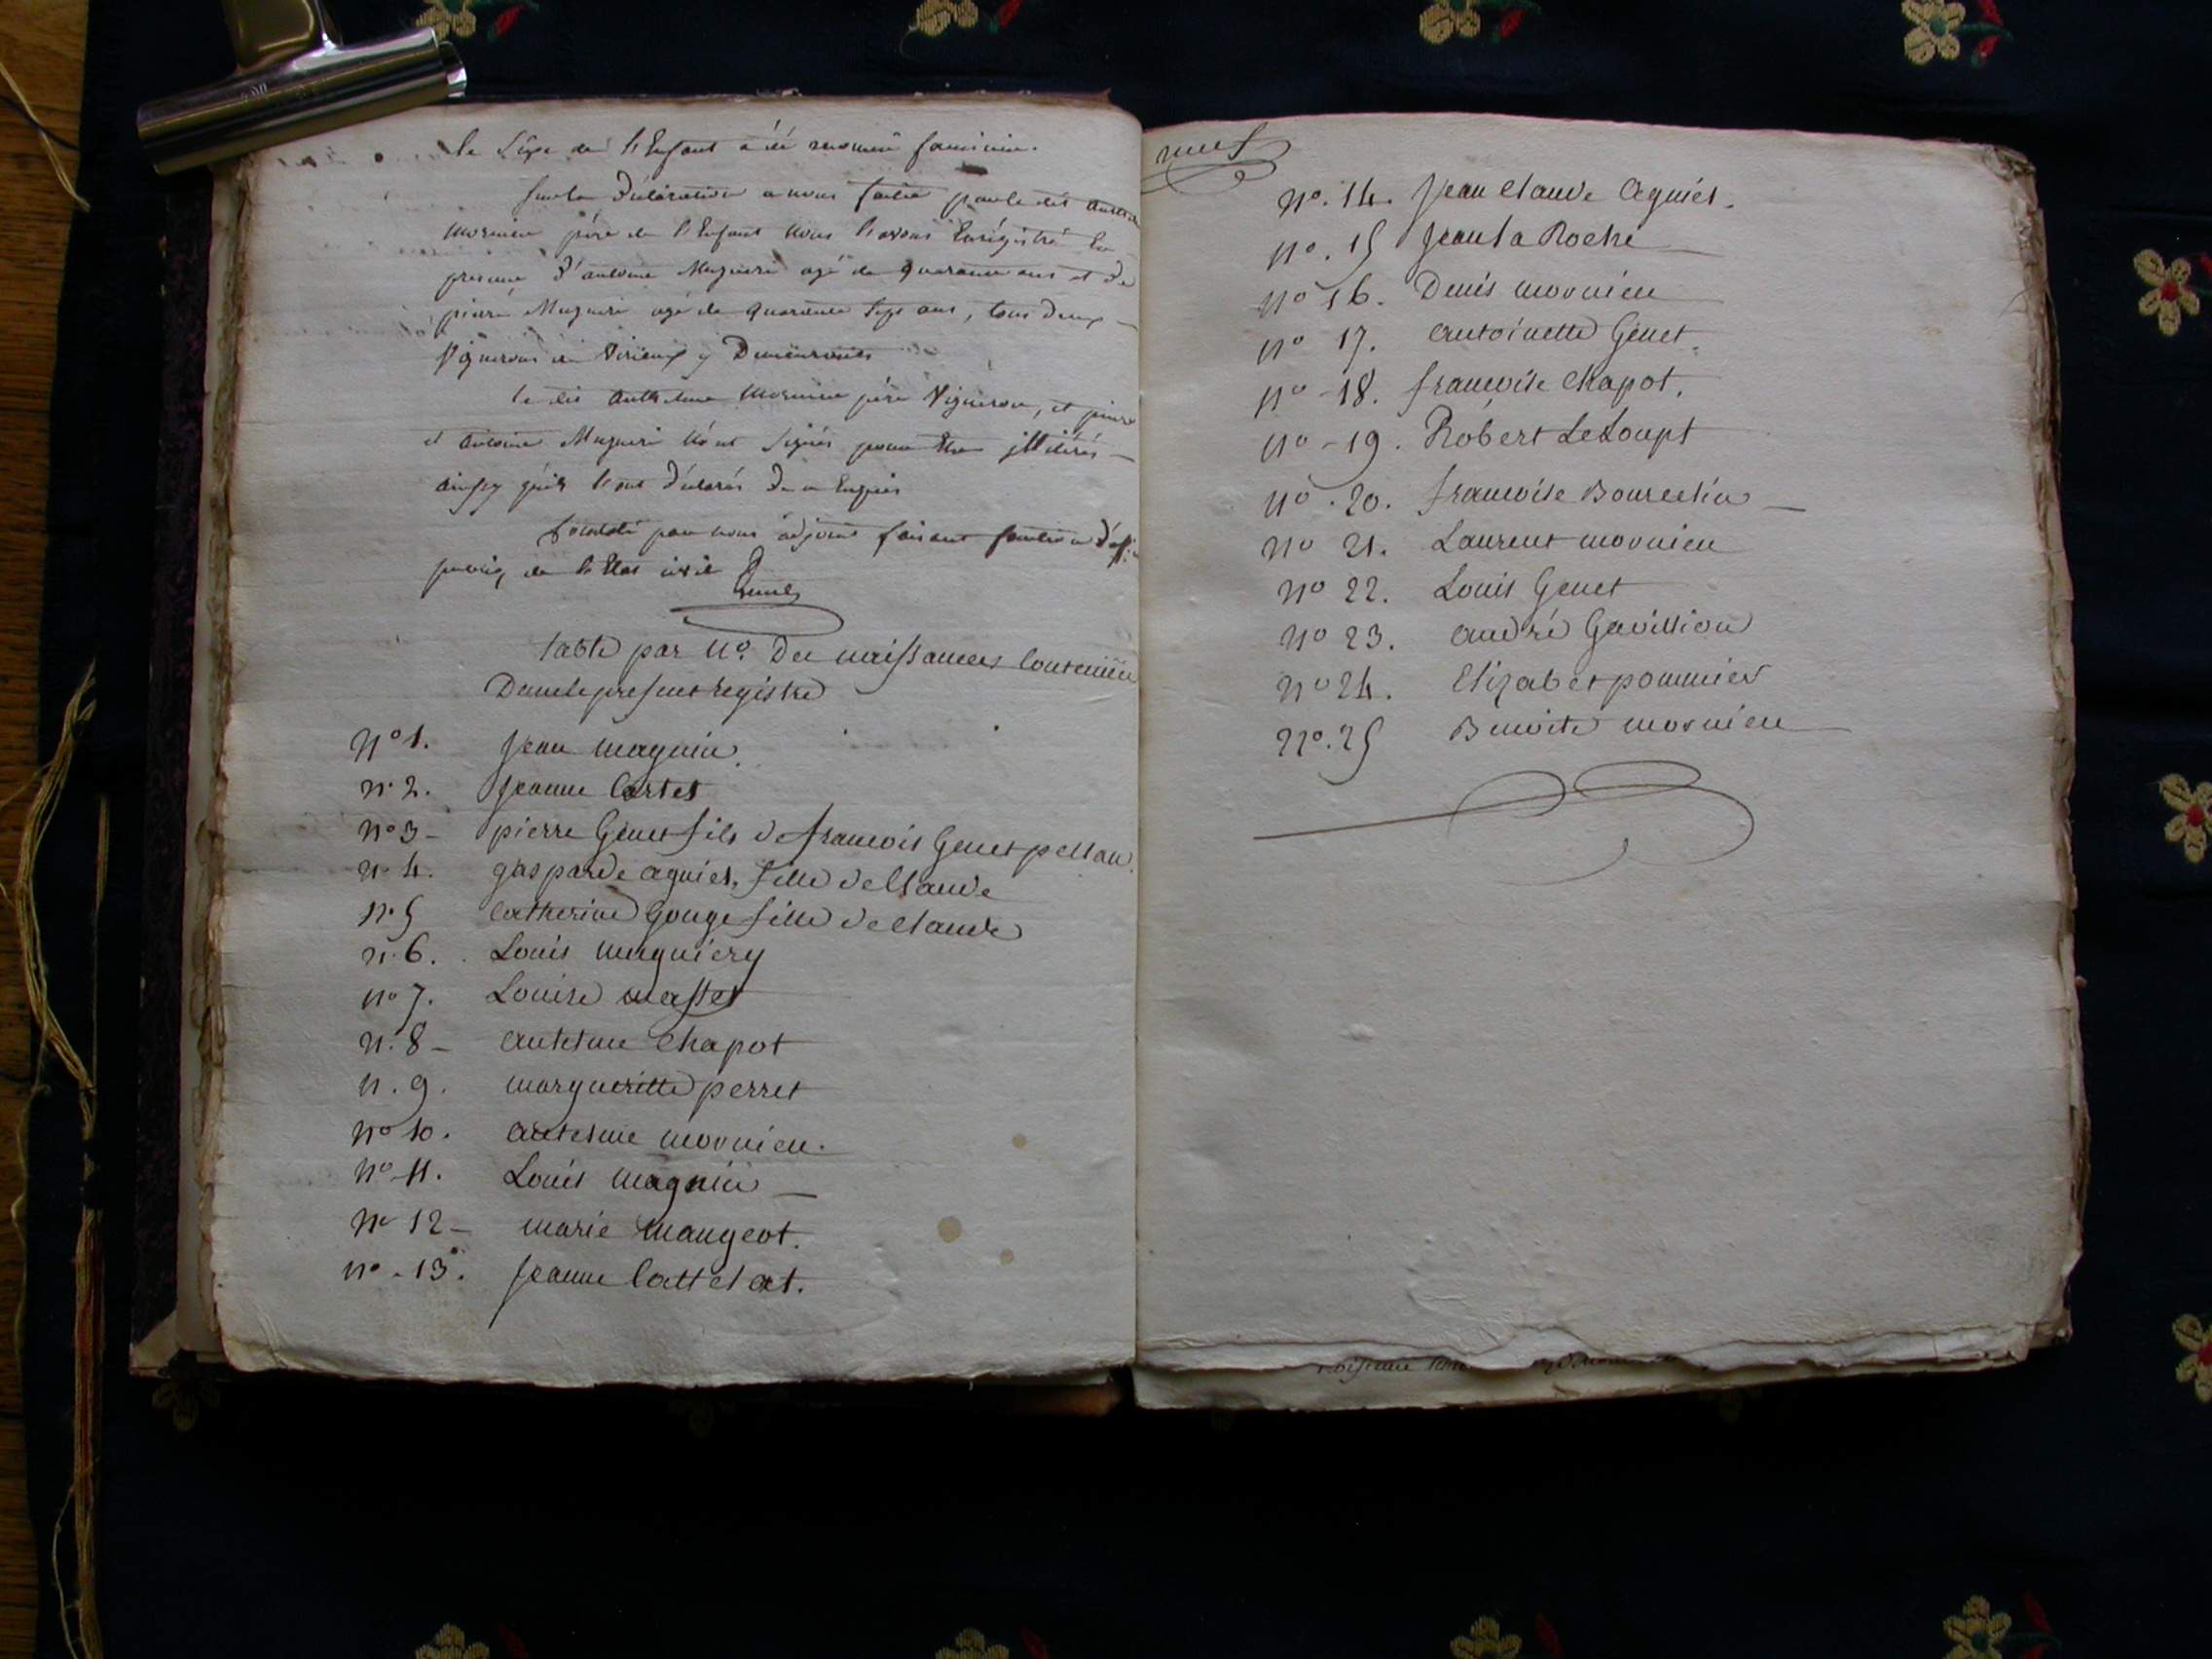 le Sexe de l'Enfant a été reconnu faminin.
sur la Déclaration a nous faitte par le dit
mornieu père de l'Enfant nous l'avons Enrégistré En
presence d'antoine Muguiri agé de quarante ans et de
pierre Muguiri agé de quarante sept ans, tous deux
Vignerons de Virieux y Demeurants
le dit Anthelme mornieu père Vigneron, et pierre
et antoine Muguiri n'ont Signés pour Etre illitérés
ainssy qu'ils l'ont déclarés De ce Enquis
Constaté par nous adjoint faisant fonction
public de l'Etat civil
table par No. Des naissances Contenües
Dans le present registre
No 1. Jean magnin.
n. 2. Jeanne Cartet
no 3 - pierre Genet fils de francois Genet pellau
n. 4. gasparde agniel, fille de Claude
n. 5 Catherine Gouge fille de claude
n. 6. Louis muguiery
no 7. Louise masset
n. 8 - antelme Chapot
n. 9. margueritte perret
no 10. antelme mornieu.
no 11. Louis magnin —
no 12 - marie mangeot.
no - 13. Jeanne Cattelat.
neuf
no. 14. Jean Claude agniel.
no. 15 Jean la Roche
no 16. Denis mornieu
no 17. antoinette Genet.
no - 18. francoise Chapot.
no - 19. Robert LeLoupt
no . 20. francoise Bourcelin —
no 21. Laurent mornieu
no 22. Louis Genet
no 23. andré Gavillion
no 24. Elizabet pommier
no. 25 Benoite mornieu